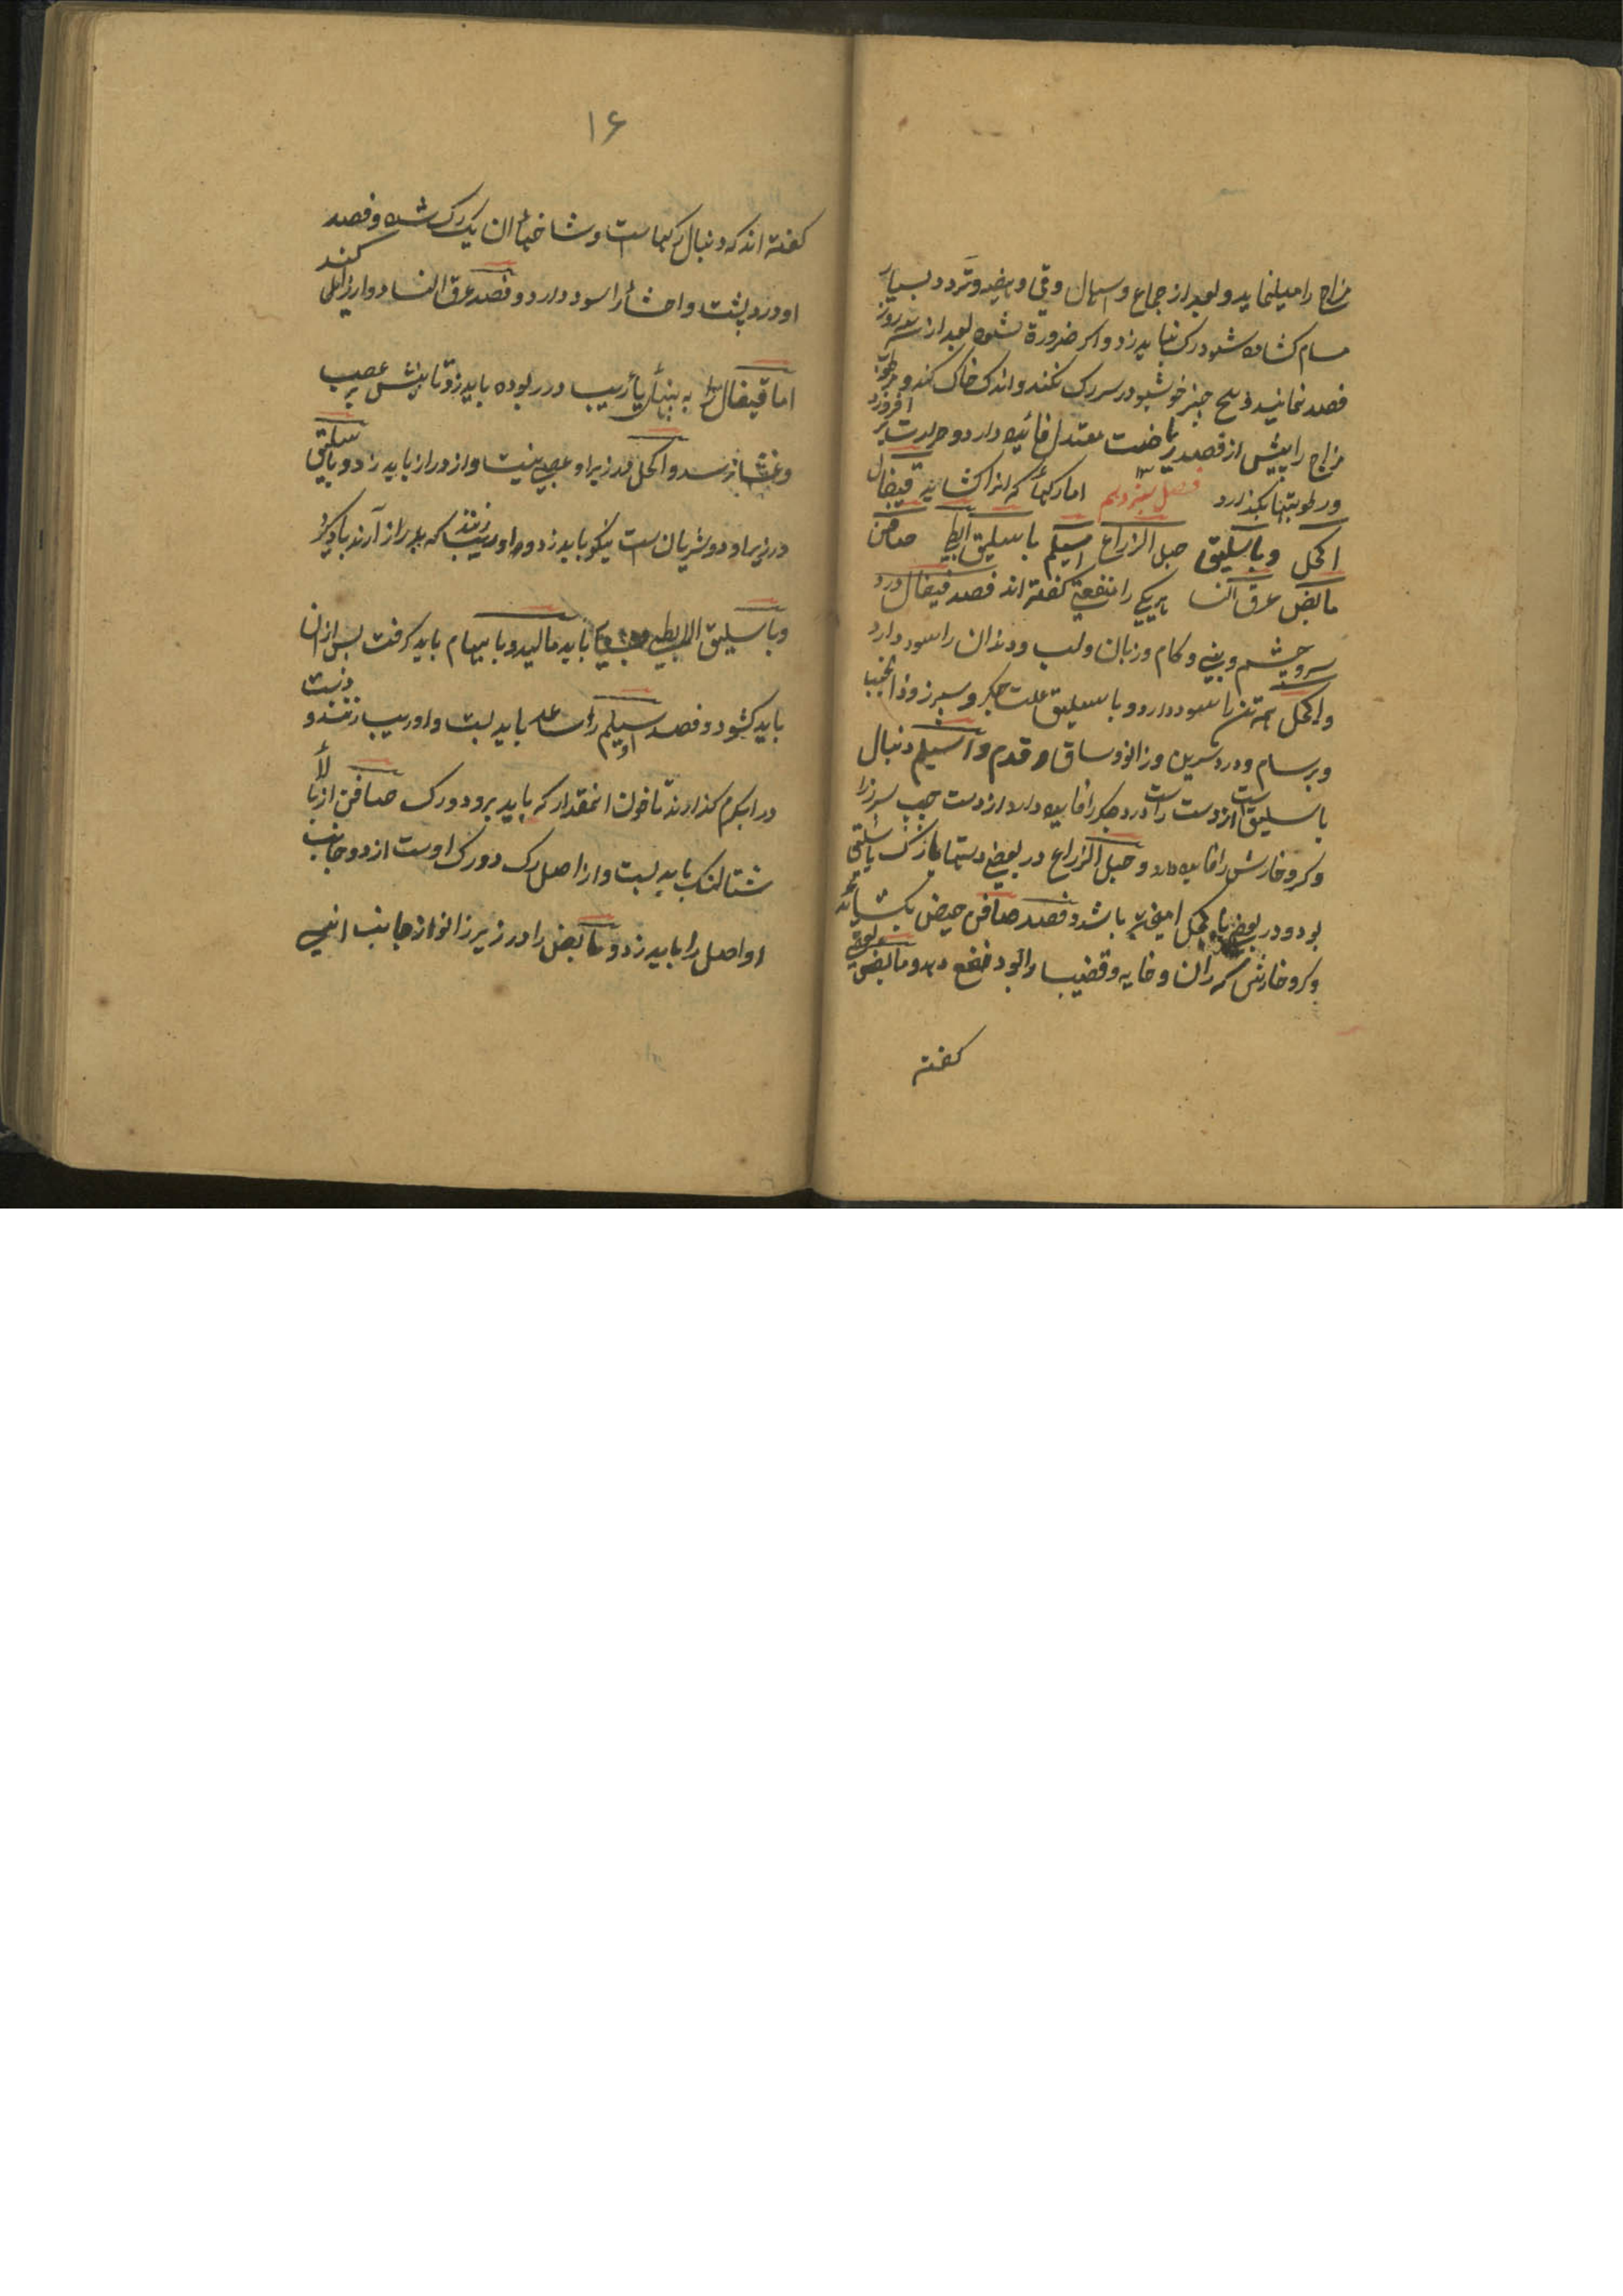 مزاج را میلنماید و بعد از جماع و اسهال و قی و هیضه و تردد بسیار
مسام کشاده شود رک نباید زد و اکر ضرورة شود بعد از سه روز
فصد نمایند و هیچ چیز خوشبو در سر رک نکند و اندک خاک کند و
مزاج را پیش از فصد ریاضت معتدل فائده دارد و حرارت بر افروزد
و رطوبتها بکذارد فصل سیزدهم اما رکها که انرا کشایند قیفال
اکحل و باسلیق حبل الزراع اسیلم باسلیق ابطی صافن
مابض عرق النسا هر یکی را منفعتی کفته اند فصد قیفال درد
سر و چشم و بینی و کام و زبان و لب و دندان را سود دارد
و اکحل همه تن را سود دارد و باسلیق علت جکر و سپرز و ذات الجنب
و برسام و درد سرین و زانو و ساق و قدم و اسیلم دنبال
باسلیق است از دست راست درد جکر را فایده دارد از دست چپ سپرز را
و کر و خارش را فایده دارد و حبل الزراع در بعضی دستها از رک باسلیق
بود و در بعضی با اکحل امیخته باشد و فصد صافن حیض بکشاید
و کر و خارش که ران و خایه و قضیب را بود نفع دهد و مابض بعضی
کفته
۱۶
کفته اند که دنبال رکها است و شاخهاء ان یک رک شده و فصد
او درد پشت و احشا را سود دارد و فصد عرق النسا دوا رانیلی کند
اما قیفال را به پهنا یا اریب در ربوده باید زد تا نیش بر عصب
و غشا نرسد و اکحل در زیر او عصبی نیست و از دراز باید زد و باسلیق
در زیر او دو شریان است نیکو باید زد و اوریب زنند که بدراز آرند باد کرد
و باسلیق الابطی باید مالید و با ابهام باید کرفت پس از ان
باید کشود و فصد اسیلم را ساعد باید بست و اوریب زنند و دست
در اب کرم کذارند تا خون انمقدار که باید برود و رک صافن از بالا
شتالنک باید بست و از اصل رک دو رک اوست از دو جانب
او اصل را باید زد و مابض را در زیر زانو از جانب انسی